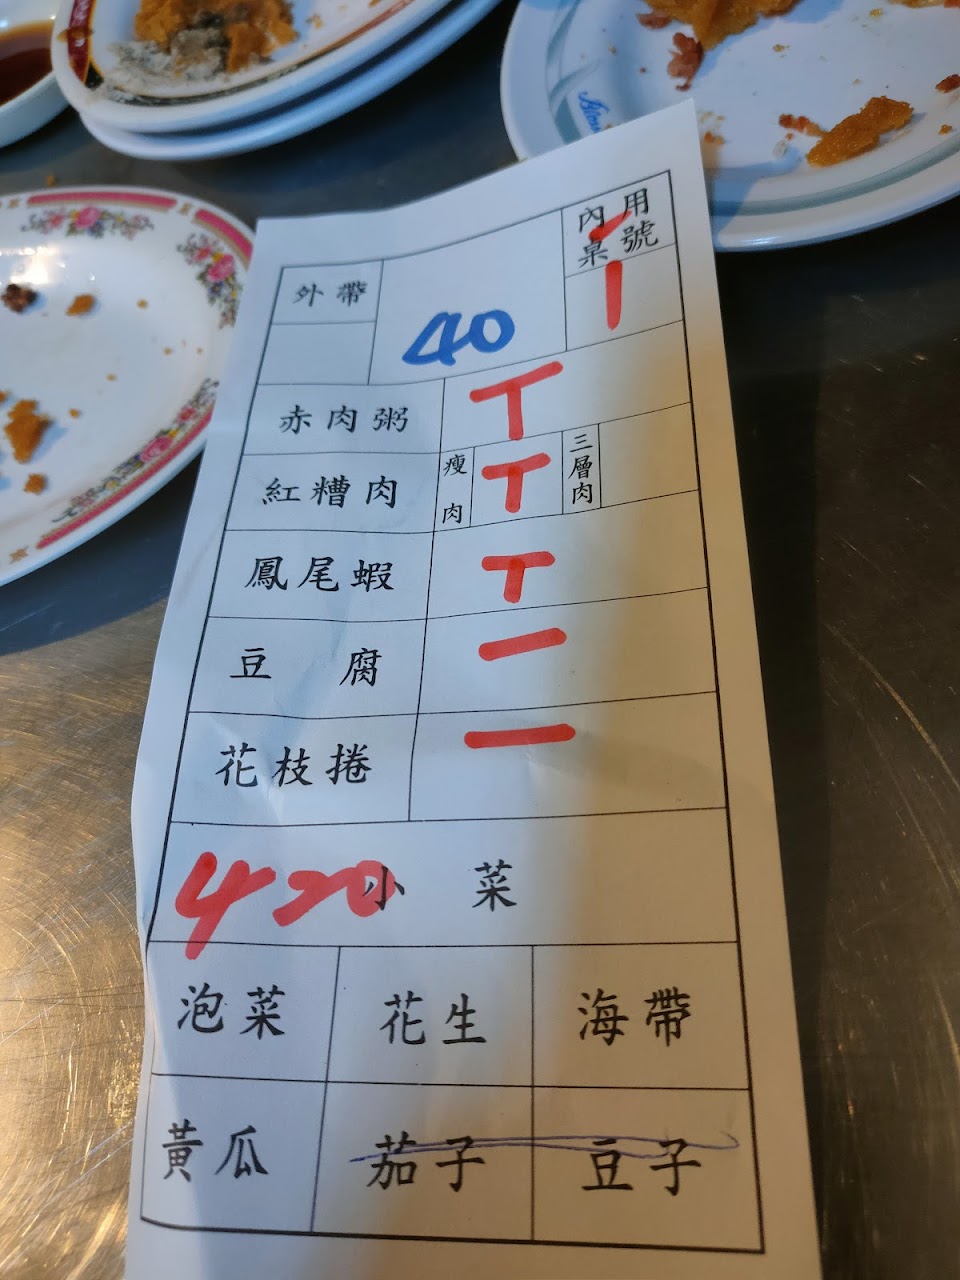 內用
桌號
外帶
40
赤肉粥
紅糟肉 瘦肉 三層肉
鳳尾蝦
豆腐
花枝捲
420
小菜
泡菜 花生 海帶
黃瓜 茄子 豆子